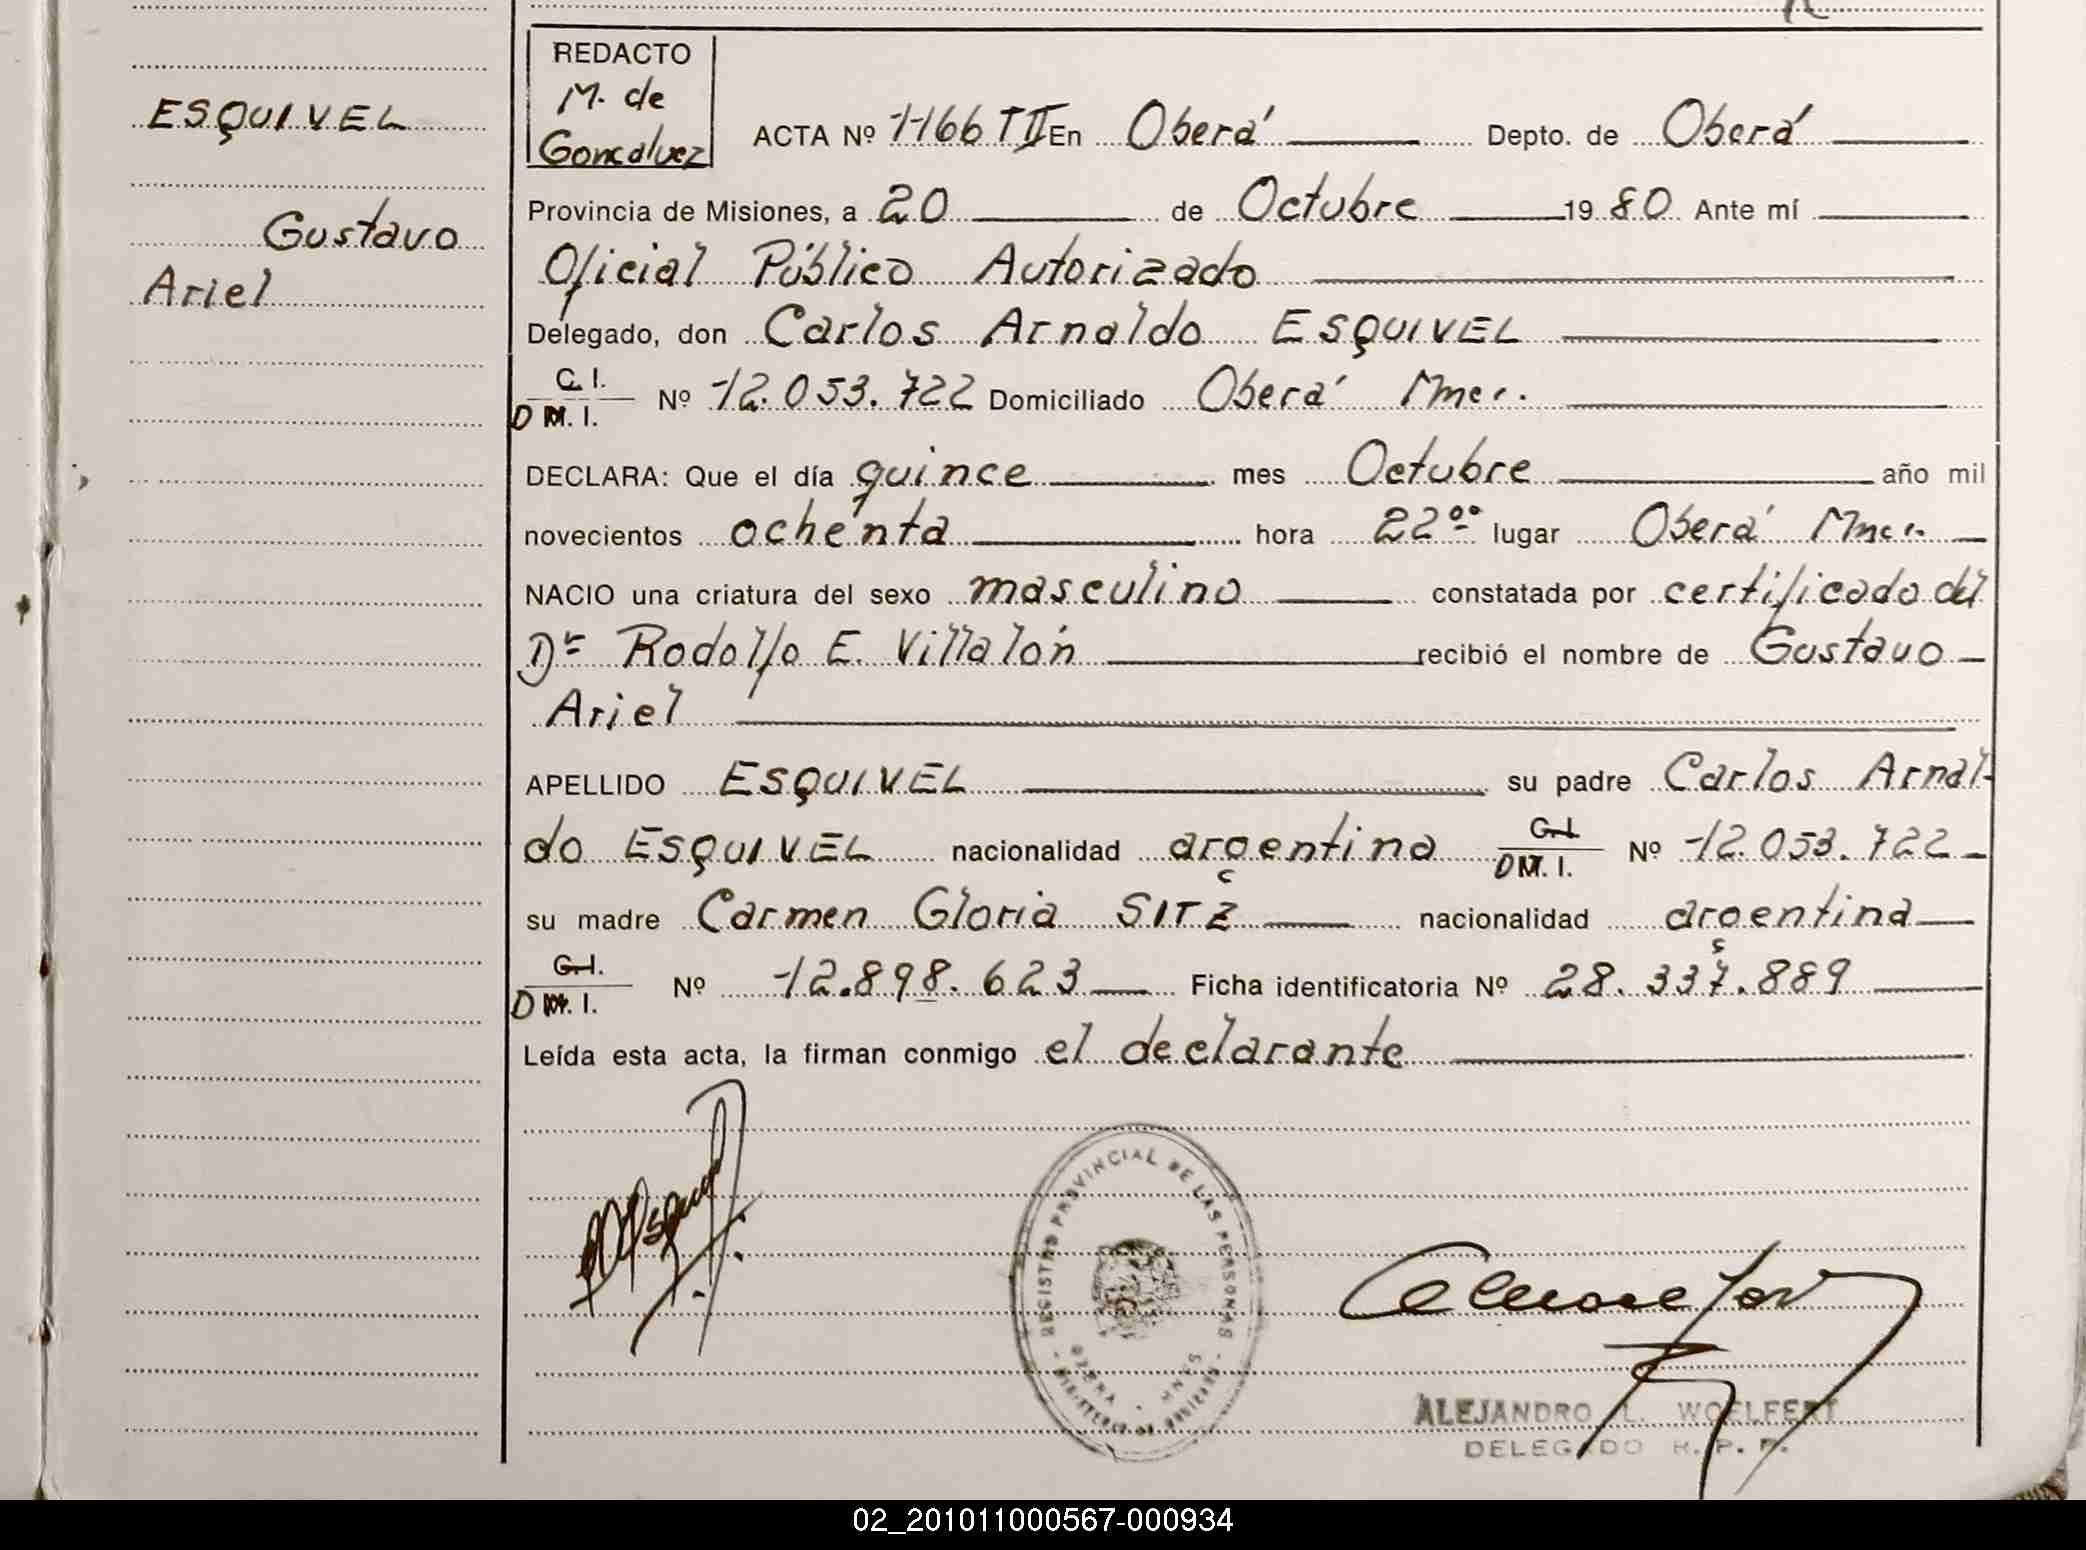 REDACTO
M. de
Goncalvez
ESQUIVEL
Gustavo
Ariel
ACTA Nº 1166 TII En Oberá Depto. de Oberá
Provincia de Misiones, a 20 de Octubre 1980 Ante mí
Oficial Público Autorizado
Delegado, don Carlos Arnaldo ESQUIVEL
C. I.
D M. I. Nº 12.053.722 Domiciliado Oberá Mnes.
DECLARA: Que el día quince mes Octubre año mil
novecientos ochenta hora 22ºº lugar Oberá Mnes.
NACIO una criatura del sexo masculino constatada por certificado del
Dr Rodolfo E. Villalón recibió el nombre de Gustavo
Ariel
APELLIDO ESQUIVEL su padre Carlos Arnal-
do ESQUIVEL nacionalidad argentina C. I.
D M. I. Nº 12.053.722
su madre Carmen Gloria SITZ nacionalidad argentina
C. I.
D M. I. Nº 12.898.623 Ficha identificatoria Nº 28.337.889
Leída esta acta, la firman conmigo el declarante
REGISTRO PROVINCIAL DE LAS PERSONAS
OBERA - MNES
ALEJANDRO L. WOELFERT
DELEGADO R. P. P.
02_201011000567-000934